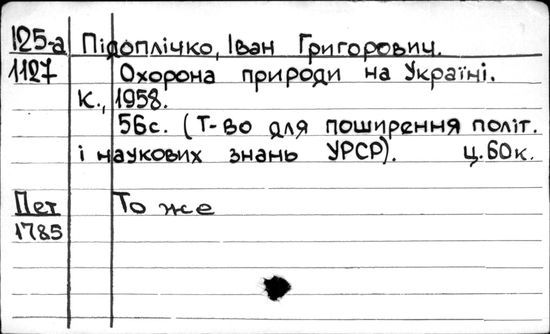 125-а Підоплічко, Іван Григорович.
1127 Охорона природи на Україні.
К., 1958.
56с. (Т-во для поширення політ.
і наукових знань УРСР). ц. 60к.
Пет То же
1785